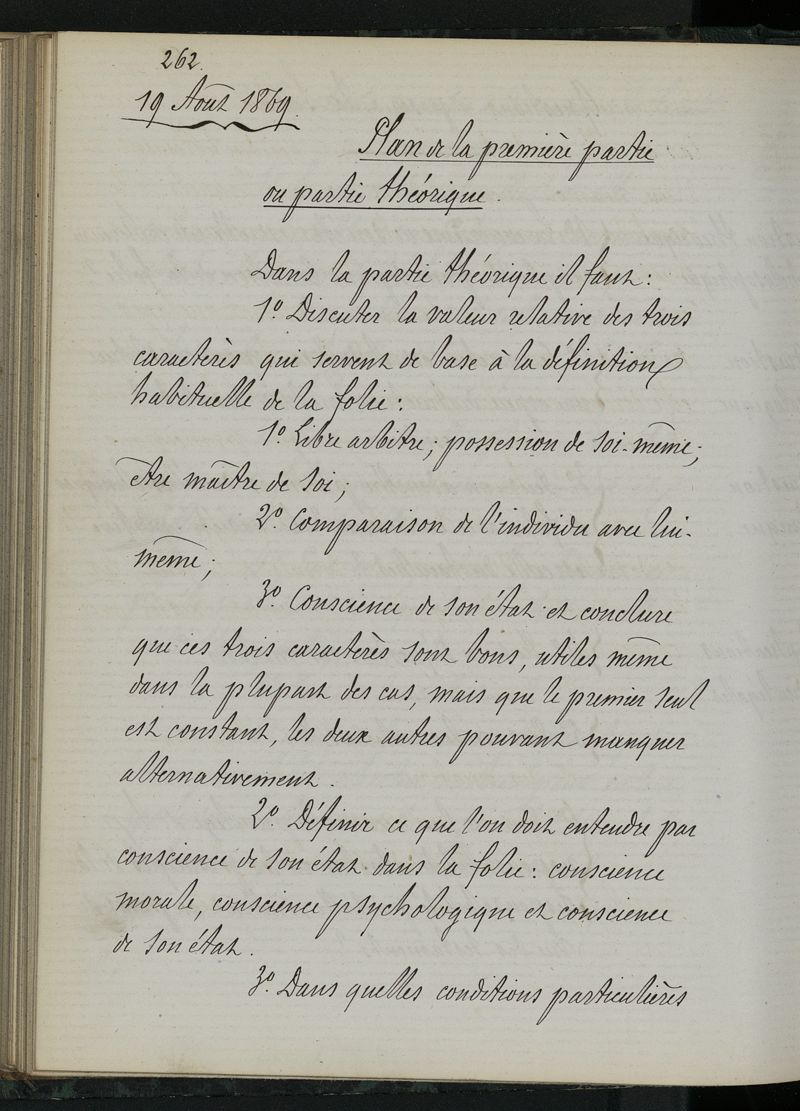 262.
19 Août 1869.
Plan de la première partie
ou partie théorique.
Dans la partie théorique il faut :
1º. Discuter la valeur relative des trois
caractères qui servent de base à la définition
habituelle de la folie :
1º. Libre arbitre ; possession de soi-même ;
être maître de soi ;
2º. Comparaison de l'individu avec lui-
même ;
3º. Conscience de son état et conclure
que ces trois caractères sont bons, utiles même
dans la plupart des cas, mais que le premier seul
est constant, les deux autres pouvant manquer
alternativement.
2º. Définir ce que l'on doit entendre par
conscience de son état dans la folie : conscience
morale, conscience psychologique et conscience
de son état.
3º. Dans quelles conditions particulières